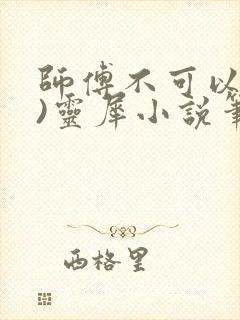 師傅不可以
)靈犀小說
西格里